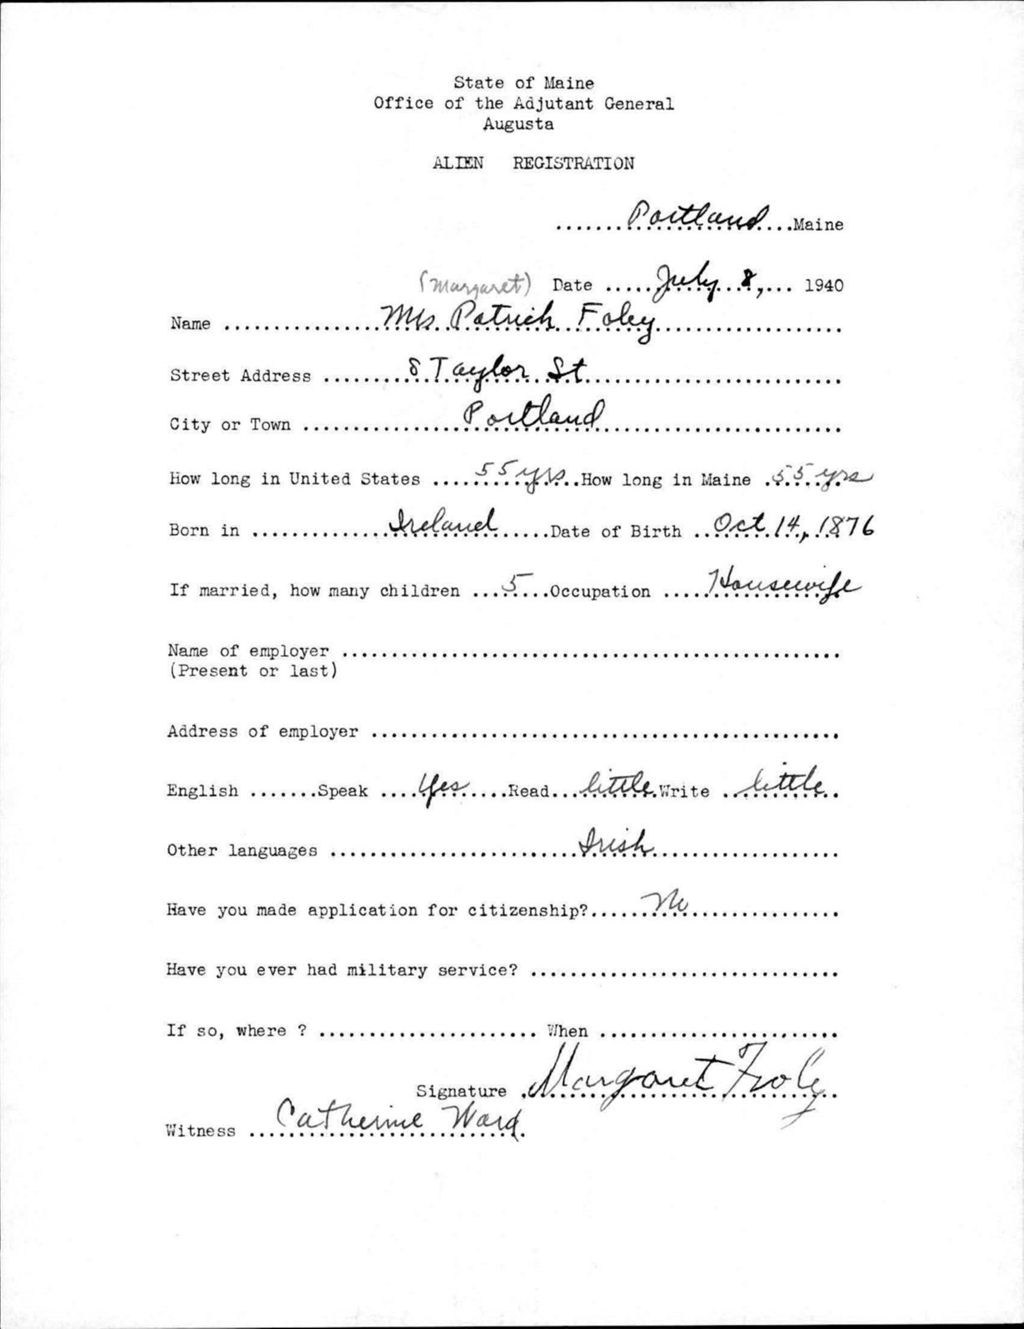 State of Maine
Office of the Adjutant General
Augusta
ALIEN REGISTRATION
.......Portland...Maine
(Margaret) Date .....July 8,... 1940
Name ................Mrs. Patrick Foley....................
Street Address .........8 Taylor St...........................
City or Town .................Portland.........................
How long in United States ....55 yrs..How long in Maine .55 yrs
Born in ..............Ireland......Date of Birth ..Oct. 14, 1876
If married, how many children ...5....Occupation .....Housewife
Name of employer ..................................................
(Present or last)
Address of employer ...............................................
English .......Speak ....Yes.....Read...little.Write ..little..
Other languages .........................Irish...................
Have you made application for citizenship?......No...............
Have you ever had military service? ...............................
If so, where ? ...................... When ........................
Signature .Margaret Foley.
Witness ..Catherine Ward.